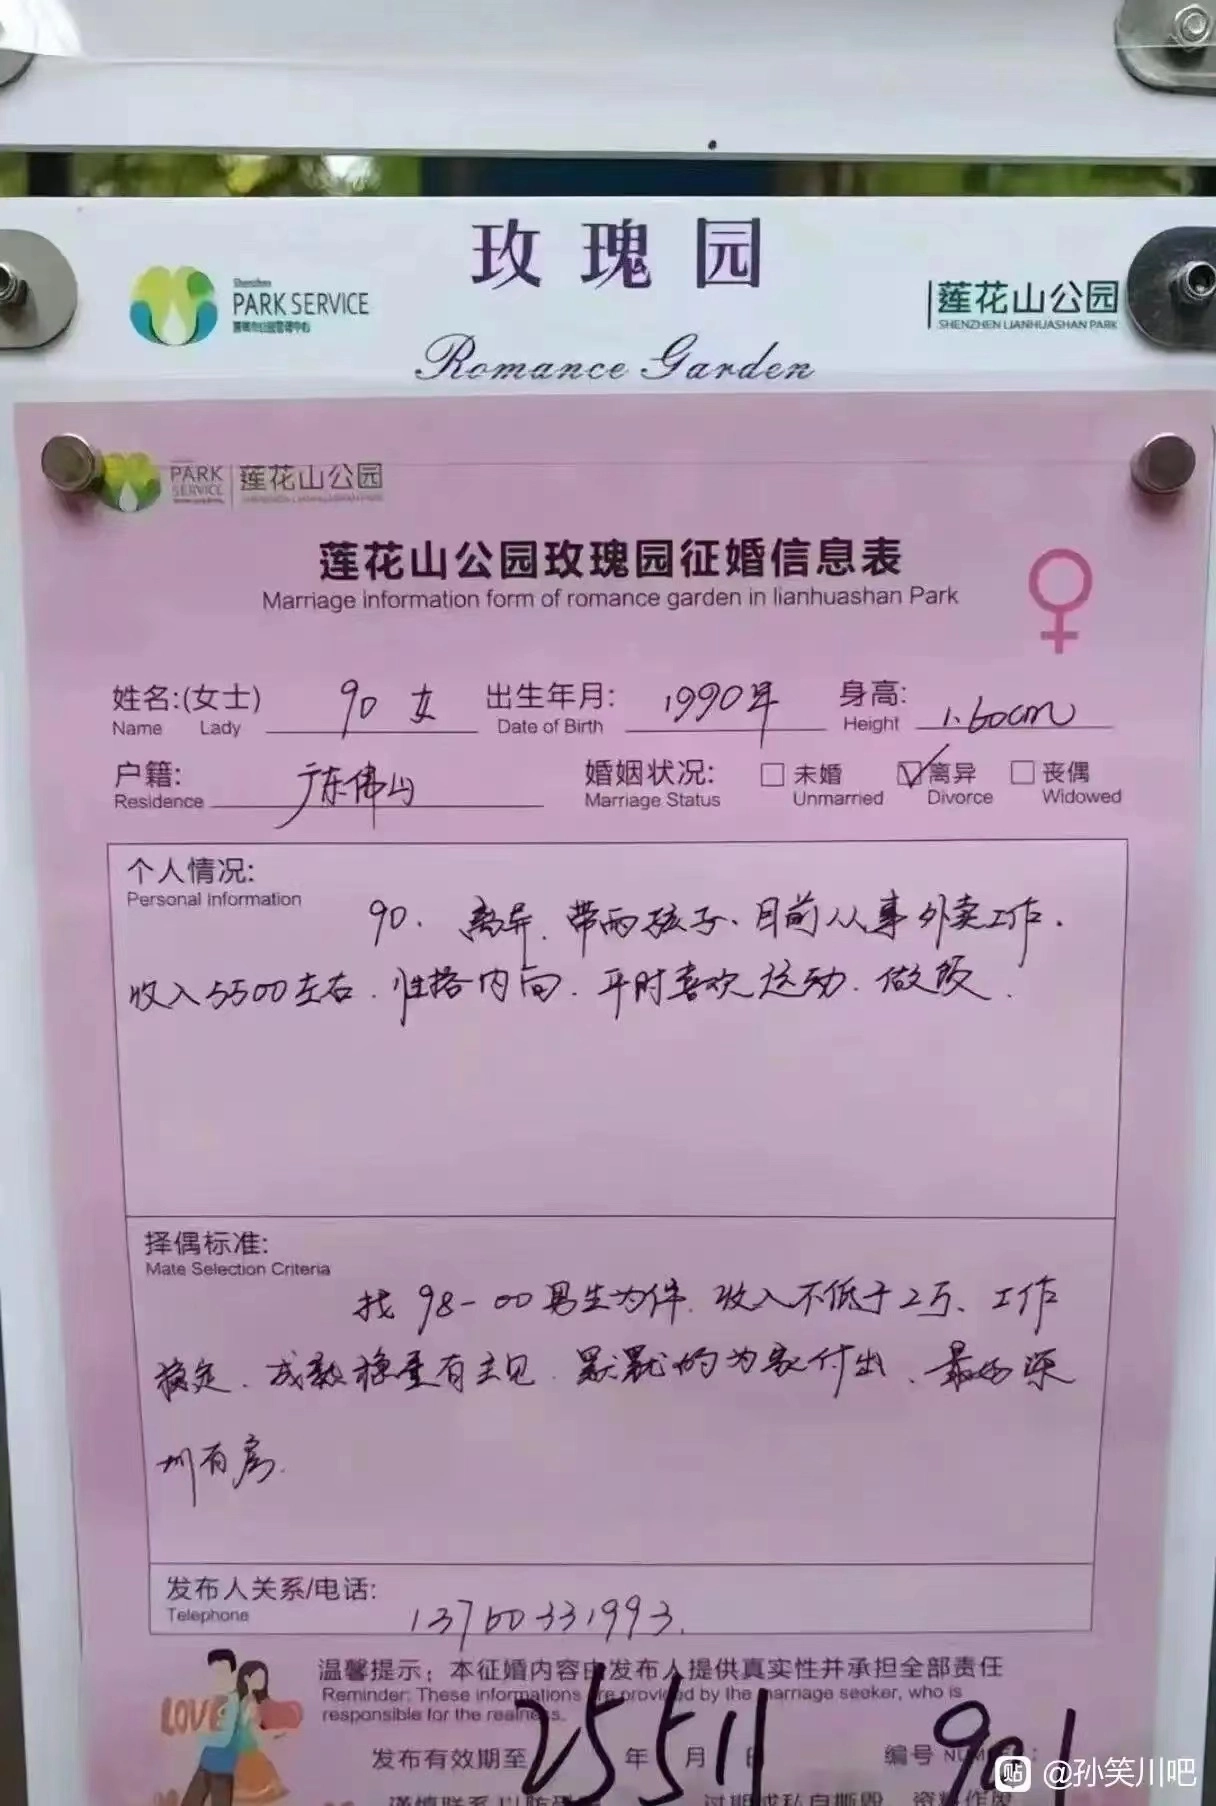 玫瑰园
Shenzhen
PARK SERVICE
深圳市公园管理中心
莲花山公园
SHENZHEN LIANHUASHAN PARK
Romance Garden
PARK SERVICE 莲花山公园
莲花山公园玫瑰园征婚信息表
Marriage information form of romance garden in lianhuashan Park
姓名:(女士) 90 女 出生年月: 1990年 身高: 1.60cm
Name Lady Date of Birth Height
户籍: 广东佛山 婚姻状况: 未婚 离异 丧偶
Residence Marriage Status Unmarried Divorce Widowed
个人情况:
Personal Information
90. 离异. 带两孩子、目前从事外卖工作.
收入5500左右. 性格内向. 平时喜欢运动. 做饭.
择偶标准:
Mate Selection Criteria
找 98-00男生为伴. 收入不低于2万、工作
稳定、成熟稳重有主见. 默默的为家付出、最好深
圳有房.
发布人关系/电话:
Telephone
13760331993.
温馨提示：本征婚内容由发布人提供真实性并承担全部责任
Reminder: These informations are provided by the marriage seeker, who is
responsible for the realness.
LOVE
发布有效期至 25 年 5 月 11 日 编号 901
过期或私自撕毁
贴 @孙笑川吧